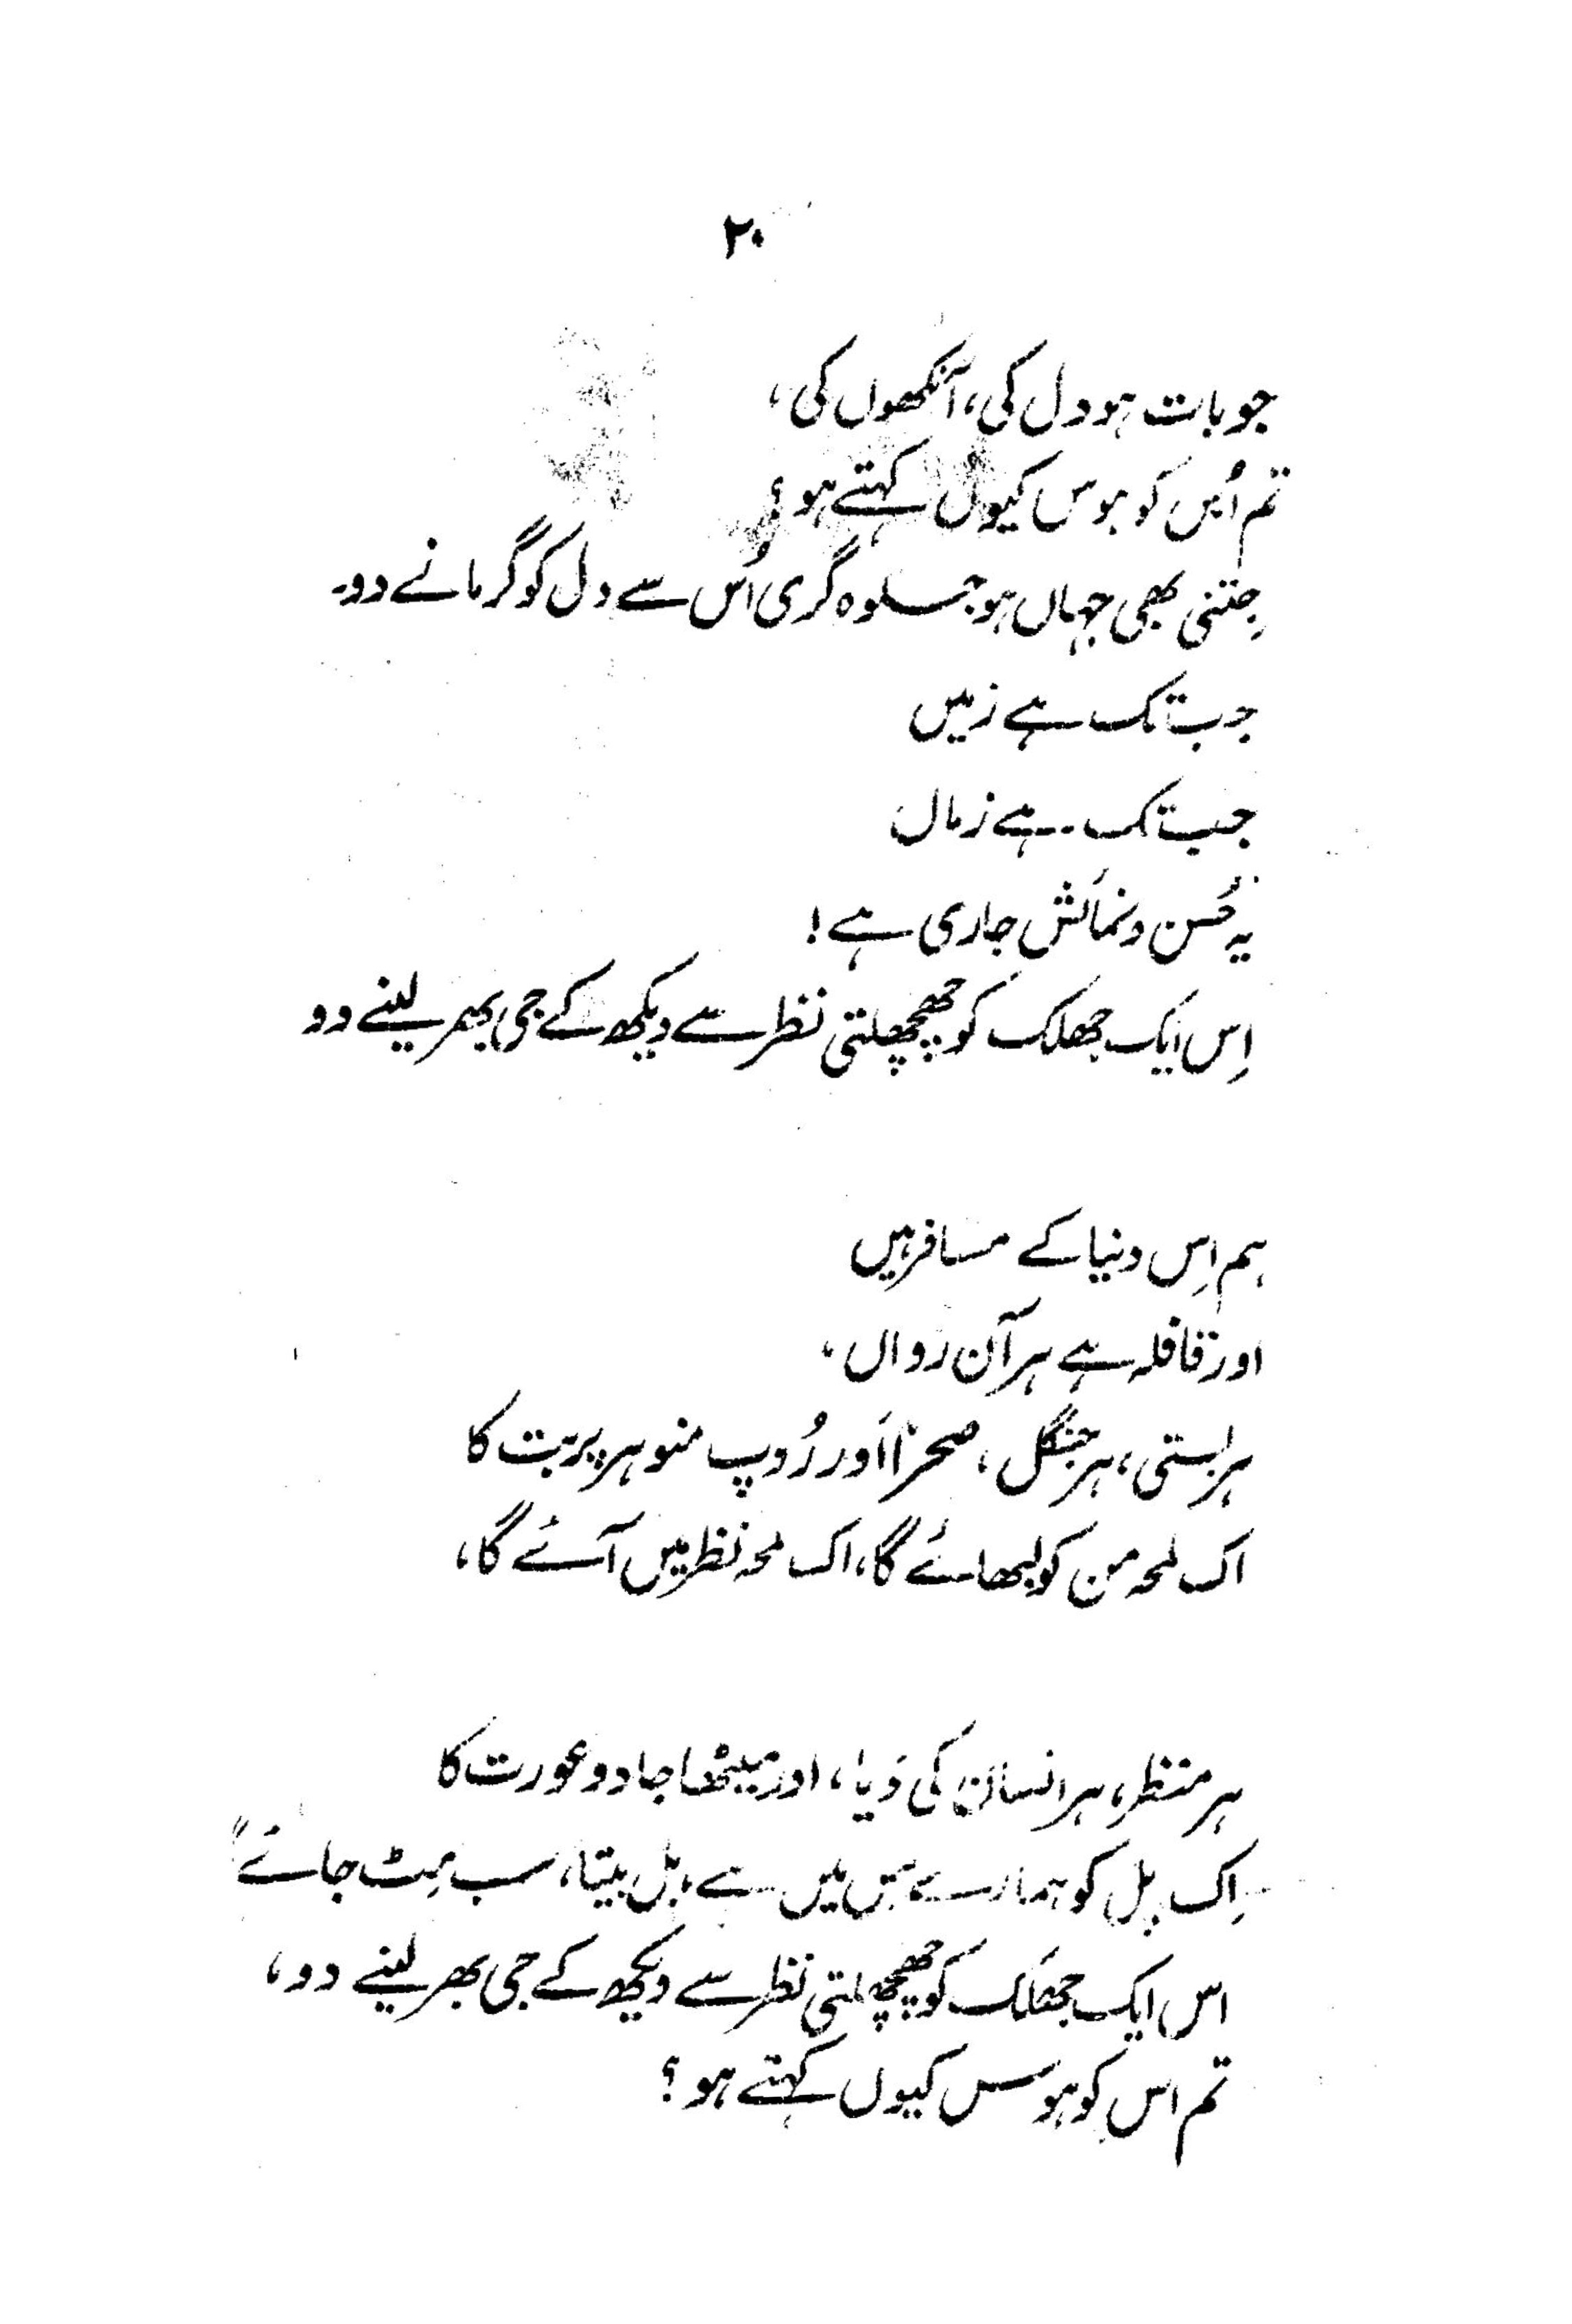 ۲۰
جو بات ہو دل کی، آنکھوں کی،
تم اُس کو ہوس کیوں کہتے ہو؟
جِتنی بھی جہاں ہو جلوہ گری اُس سے دل کو گرمانے دو۔
جب تک ہے زمیں
جب تک ہے زماں
یہ حُسن و نمائش جاری ہے!
اِس ایک جھلک کو چھچھلتی نظر سے دیکھ کے جی بھر لینے دو
ہم اِس دنیا کے مسافر ہیں
اور قافلہ ہے ہر آن رواں،
ہر بستی، ہر جنگل، صحرا اَور رُوپ منوہر پربت کا
اک لمحہ من کو لبھائے گا، اک لمحہ نظر میں آئے گا،
ہر منظر، ہر انسان کی دَیا، اور میٹھا جادو عورت کا
اِک پل کو ہمارے بس میں ہے، پل بیتا، سب مِٹ جائے گا
اس ایک جھلک کو چھچھلتی نظر سے دیکھ کے جی بھر لینے دو،
تم اس کو ہوس کیوں کہتے ہو؟